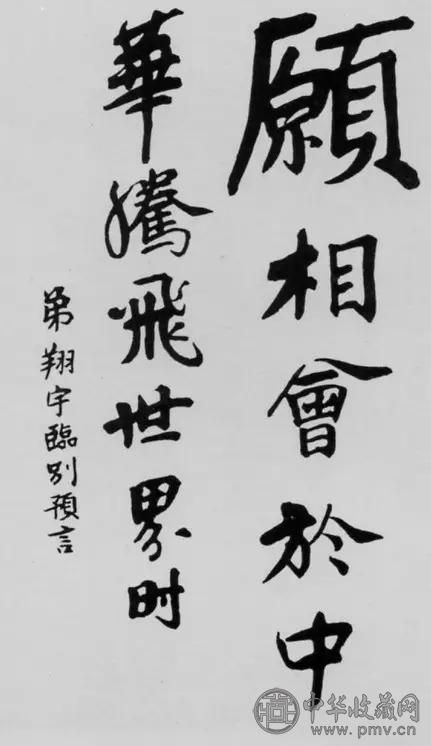 願相會於中
華騰飛世界时
弟翔宇臨别預言
中华收藏网
www.pmv.cn